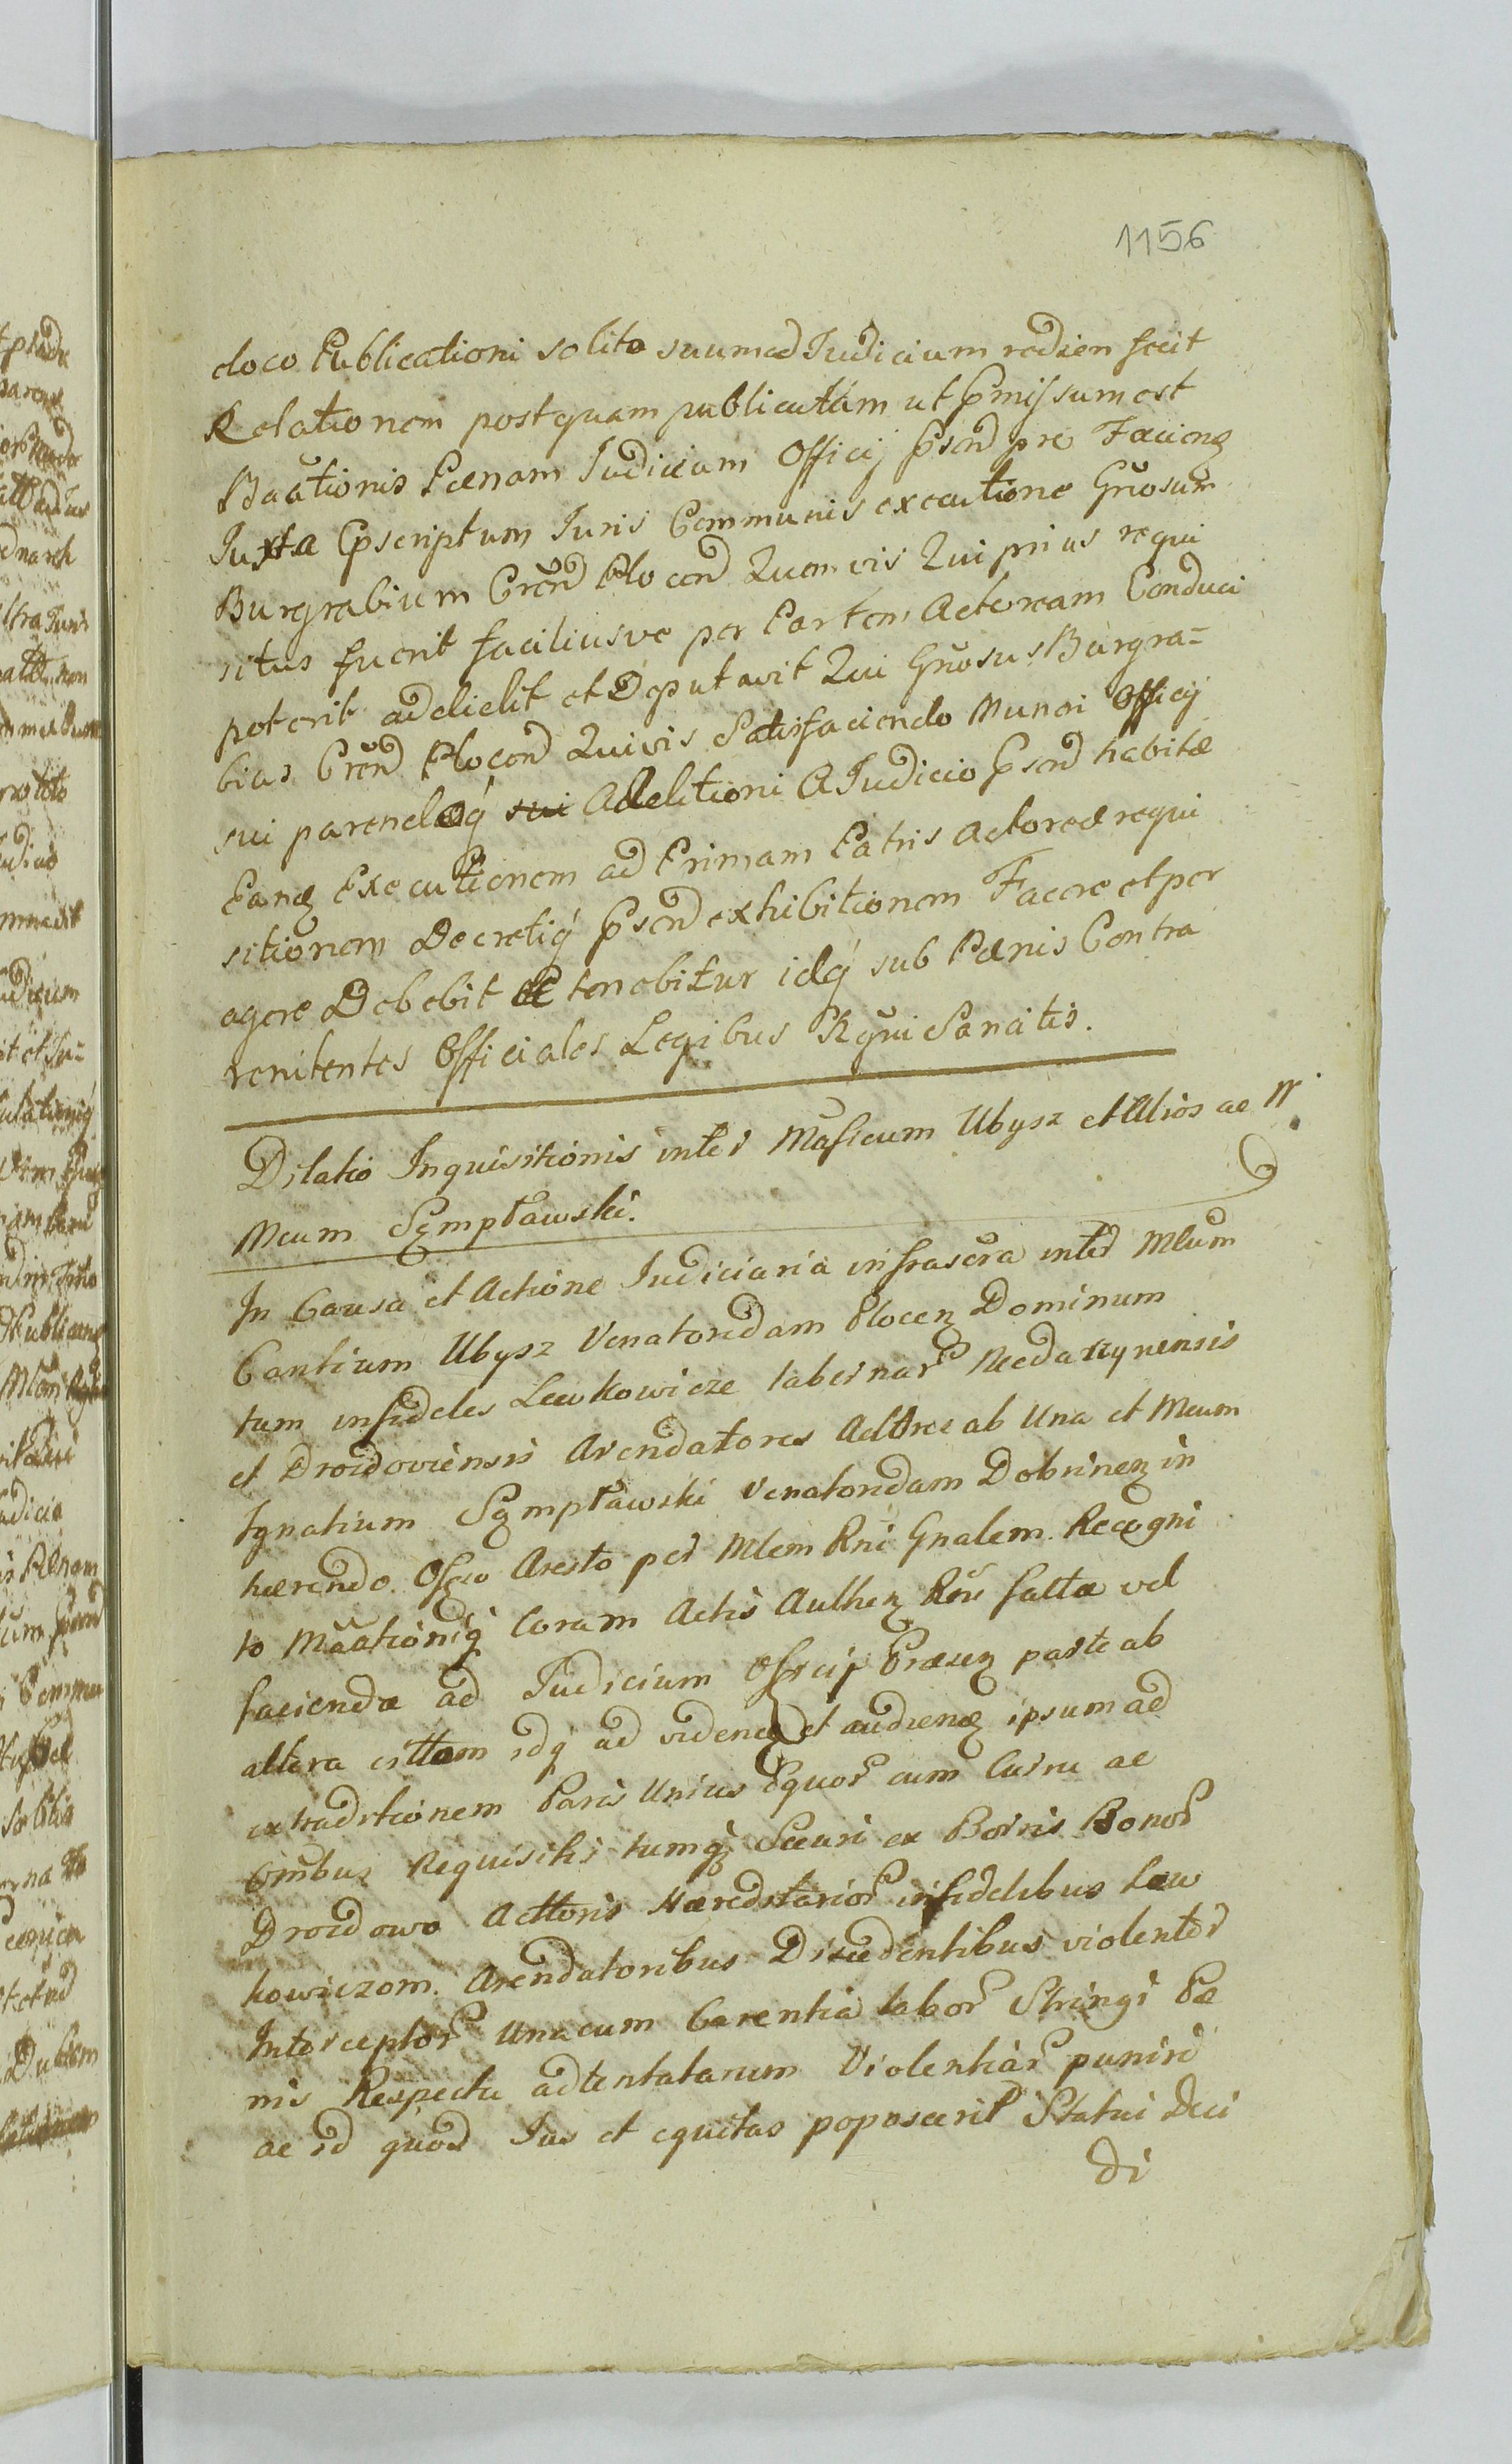 1156
eloco Publicationi solito suum ad Judicium redien fecit
Relationem postquam publicatam ut Pmissum est
Banitionis Pænam Judicium Officij Psend pro Faciend
Juxta Pscriptum Juris Communis executione Gnosum
Burgrabium Crend Plocend Quemvis Qui prius requi
situs fuerit faciliusve per Partem Actoream Conduci
poterit addidit et Deputavit Qui Gnosus Burgra-
bius Crend Plocend Quivis Satisfaciendo Muneri Officij
sui parendoq sui Additioni A Judicio Psend habitæ
Eand Executionem ad Primam Patris Actoreæ requi
sitionem Decretiq Psend exhibitionem Facere et per
agere Debebit et tenebitur idq sub Pænis Contra
renitentes Officiales Legibus Rgni Sancitis.
Dilatio Inquisitionis inter Mgficum Ubysz et Alios ac
Mcum Szmpławski.
In Causa et Actione Judiciaria infrascra inter Mlum
Cantium Ubysz Venatoridam Plocen Dominum
tum infideles Lewkowicze tabernar
et Drozdoviensis Arendatores Actores ab Una et Mcum
Ignatium Szmpławski Venatoridam Dobrinen in
hærendo Offico Aresto per Mlem Rni Gnalem Recogni
to Mãationiq Coram Actis Authen factæ vel
faciendæ ad Judicium Officij Præsen parte ab
altera cittam idq ad videnq et audienq ipsum ad
extraditionem Paris Unius Equor cum Curru ac
Omibus Requisitis tumq Securi ex Borris Bonor
Drozdowo Acttoris Hæreditarior infidelibus Lew
kowiczom Arendatoribus Discedentibus violenter
Interceptor Unacum Carentia labor Stringi Pæ
nis Respectu adtentatarum Violentiar puniri
ac id quod Jus et equitas poposcerit Statui Deci
di